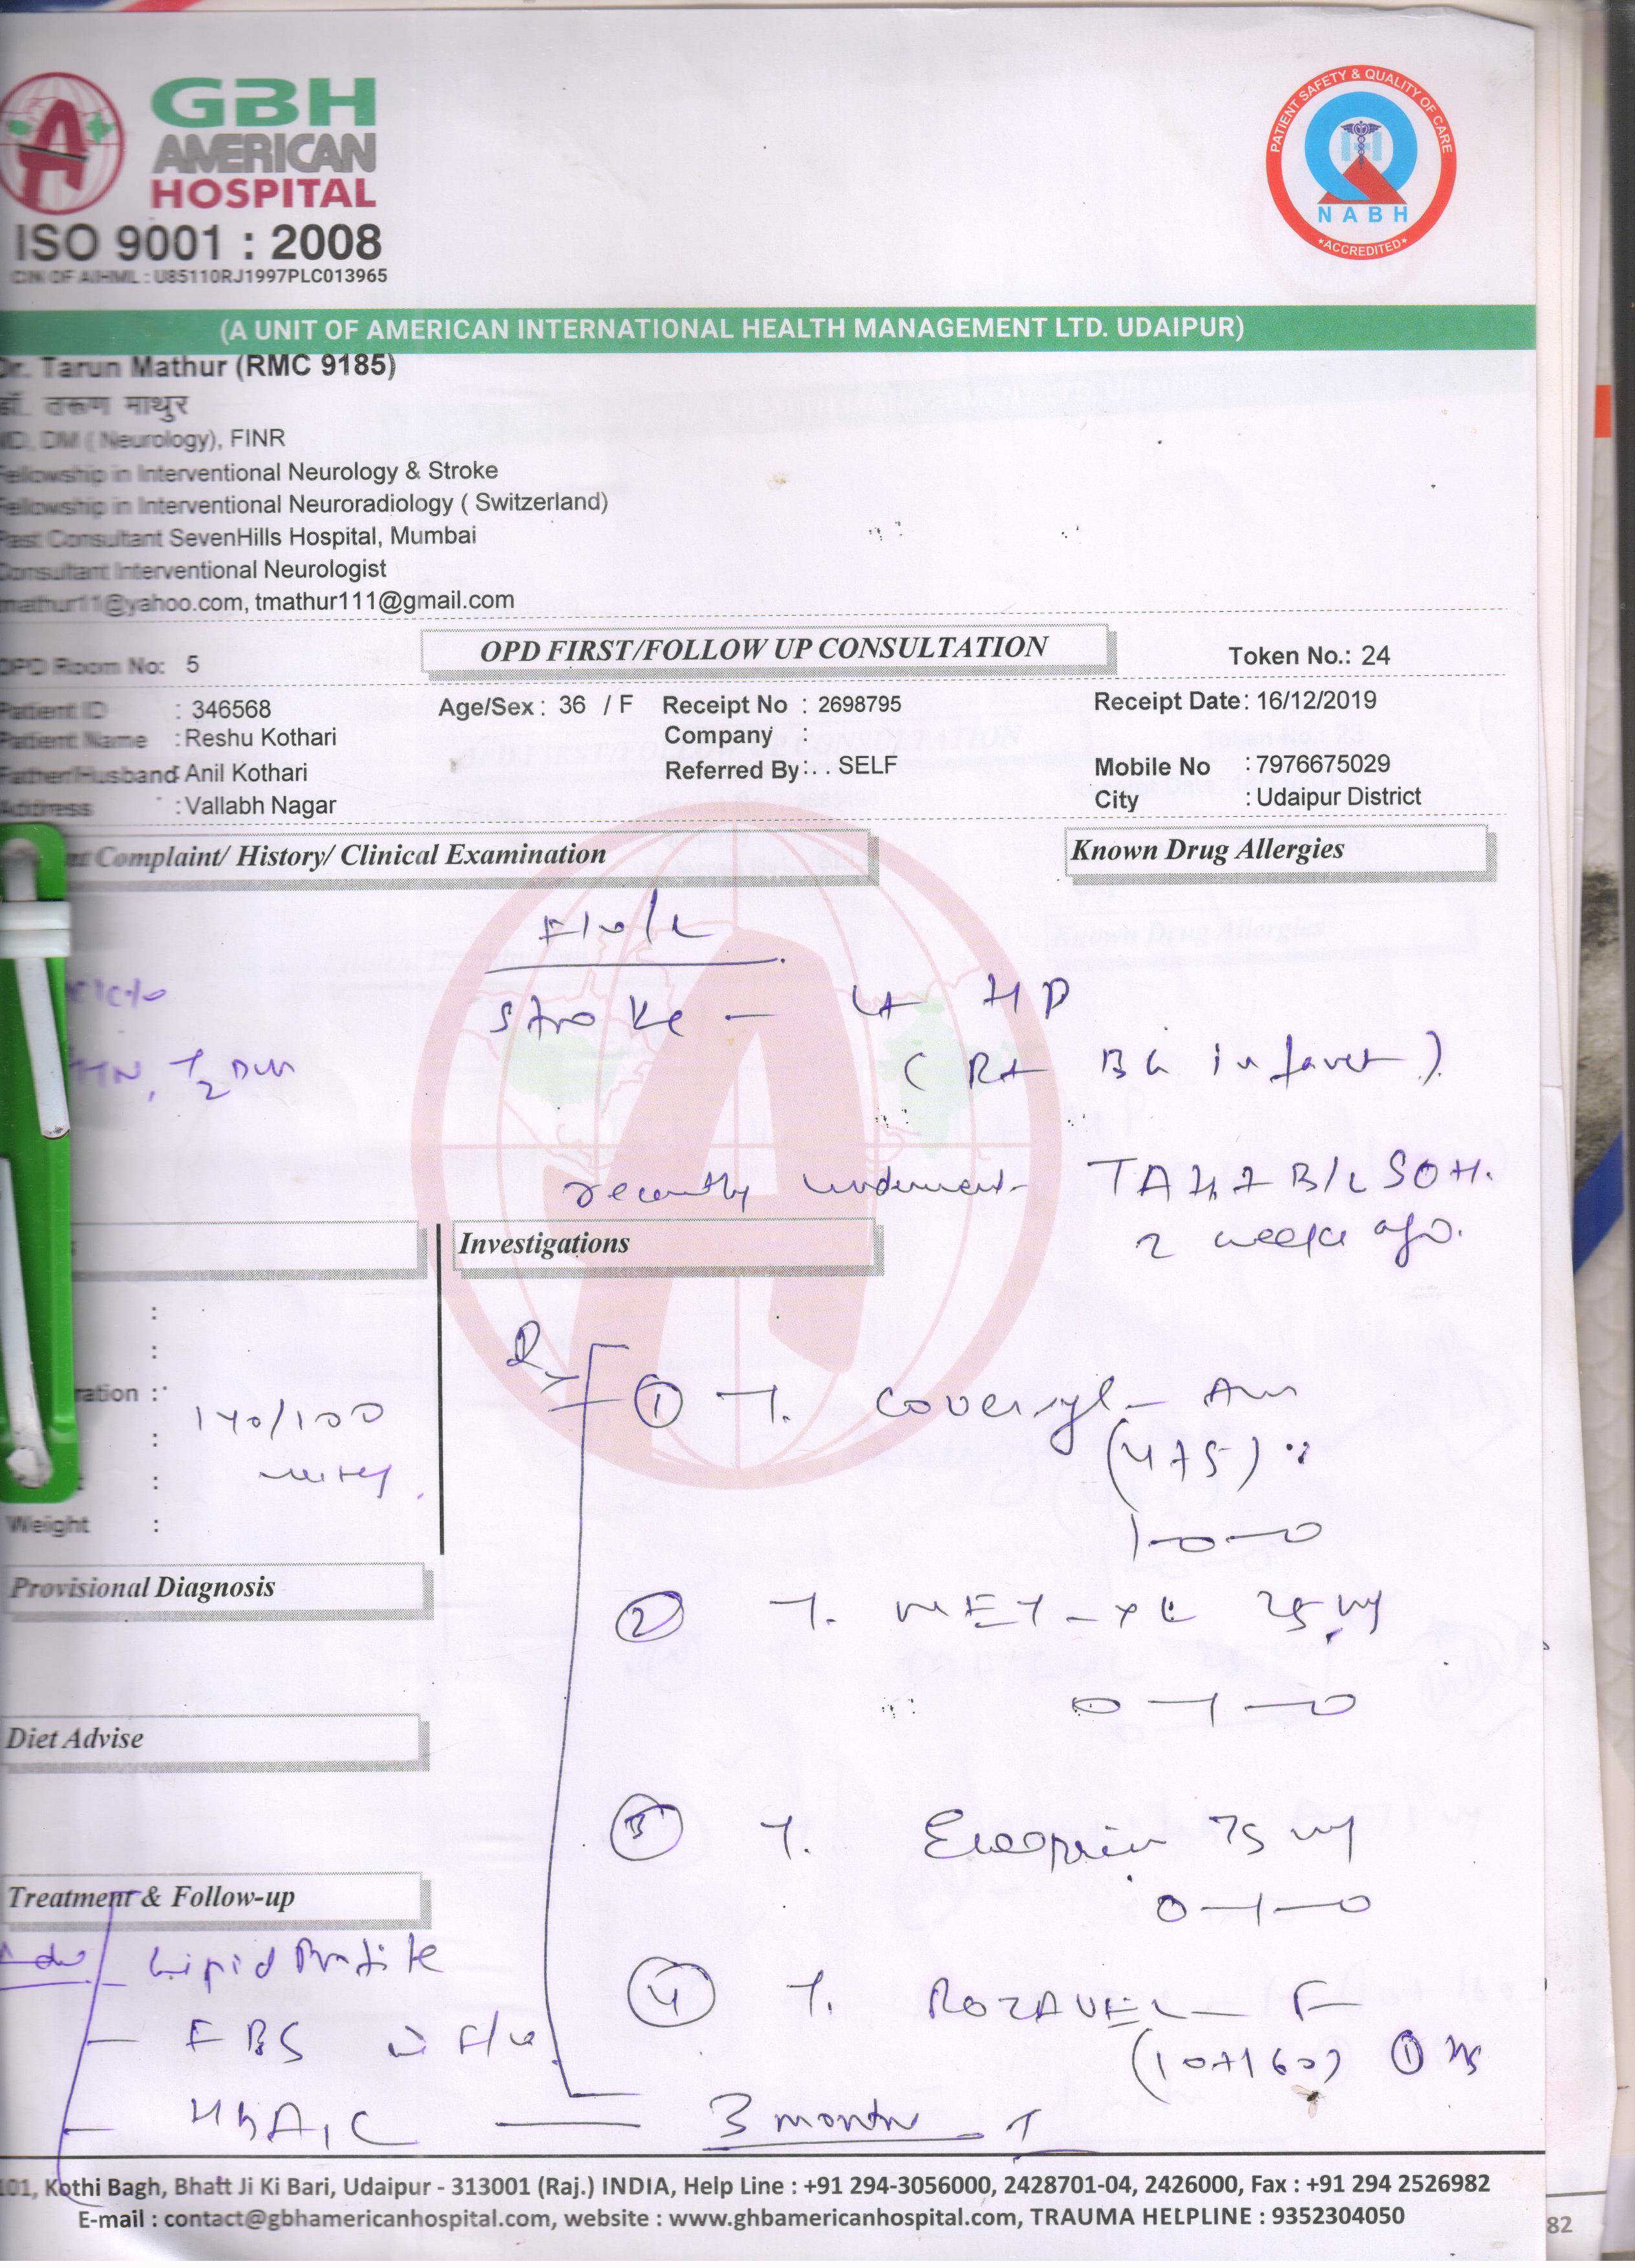 GBH
AMERICAN
HOSPITAL
ISO 9001 : 2008
CIN OF AIHML : U85110RJ1997PLC013965
PATIENT SAFETY & QUALITY OF CARE
NABH
ACCREDITED
(A UNIT OF AMERICAN INTERNATIONAL HEALTH MANAGEMENT LTD. UDAIPUR)
Dr. Tarun Mathur (RMC 9185)
डॉ. तरूण माथुर
MD, DM ( Neurology), FINR
Fellowship in Interventional Neurology & Stroke
Fellowship in Interventional Neuroradiology ( Switzerland)
Past Consultant SevenHills Hospital, Mumbai
Consultant Interventional Neurologist
tmathur11@yahoo.com, tmathur111@gmail.com
OPD Room No: 5 OPD FIRST/FOLLOW UP CONSULTATION Token No.: 24
Patient ID : 346568 Age/Sex : 36 / F Receipt No : 2698795 Receipt Date: 16/12/2019
Patient Name : Reshu Kothari Company :
Father/Husband : Anil Kothari Referred By : . . SELF Mobile No : 7976675029
Address : Vallabh Nagar City : Udaipur District
Complaint/ History/ Clinical Examination Known Drug Allergies
Stroke - Lt HP
(Rt BG infarct)
HTN, T2 DM
recently underwent TAH + B/L SOH.
2 weeks ago.
Investigations
ration :
140/100
mmHg
Weight :
Rx
① T. Coversyl - Am
(4+5)
1-0-0
② T. MET-XL 25 mg
0-1-0
③ T. Ecosprin 75 mg
0-1-0
④ T. ROZAVEL - F
(10+160) ① HS
Provisional Diagnosis
Diet Advise
Treatment & Follow-up
Adv
- Lipid Profile
- FBS
- HbA1C
3 months
101, Kothi Bagh, Bhatt Ji Ki Bari, Udaipur - 313001 (Raj.) INDIA, Help Line : +91 294-3056000, 2428701-04, 2426000, Fax : +91 294 2526982
E-mail : contact@gbhamericanhospital.com, website : www.ghbamericanhospital.com, TRAUMA HELPLINE : 9352304050
82